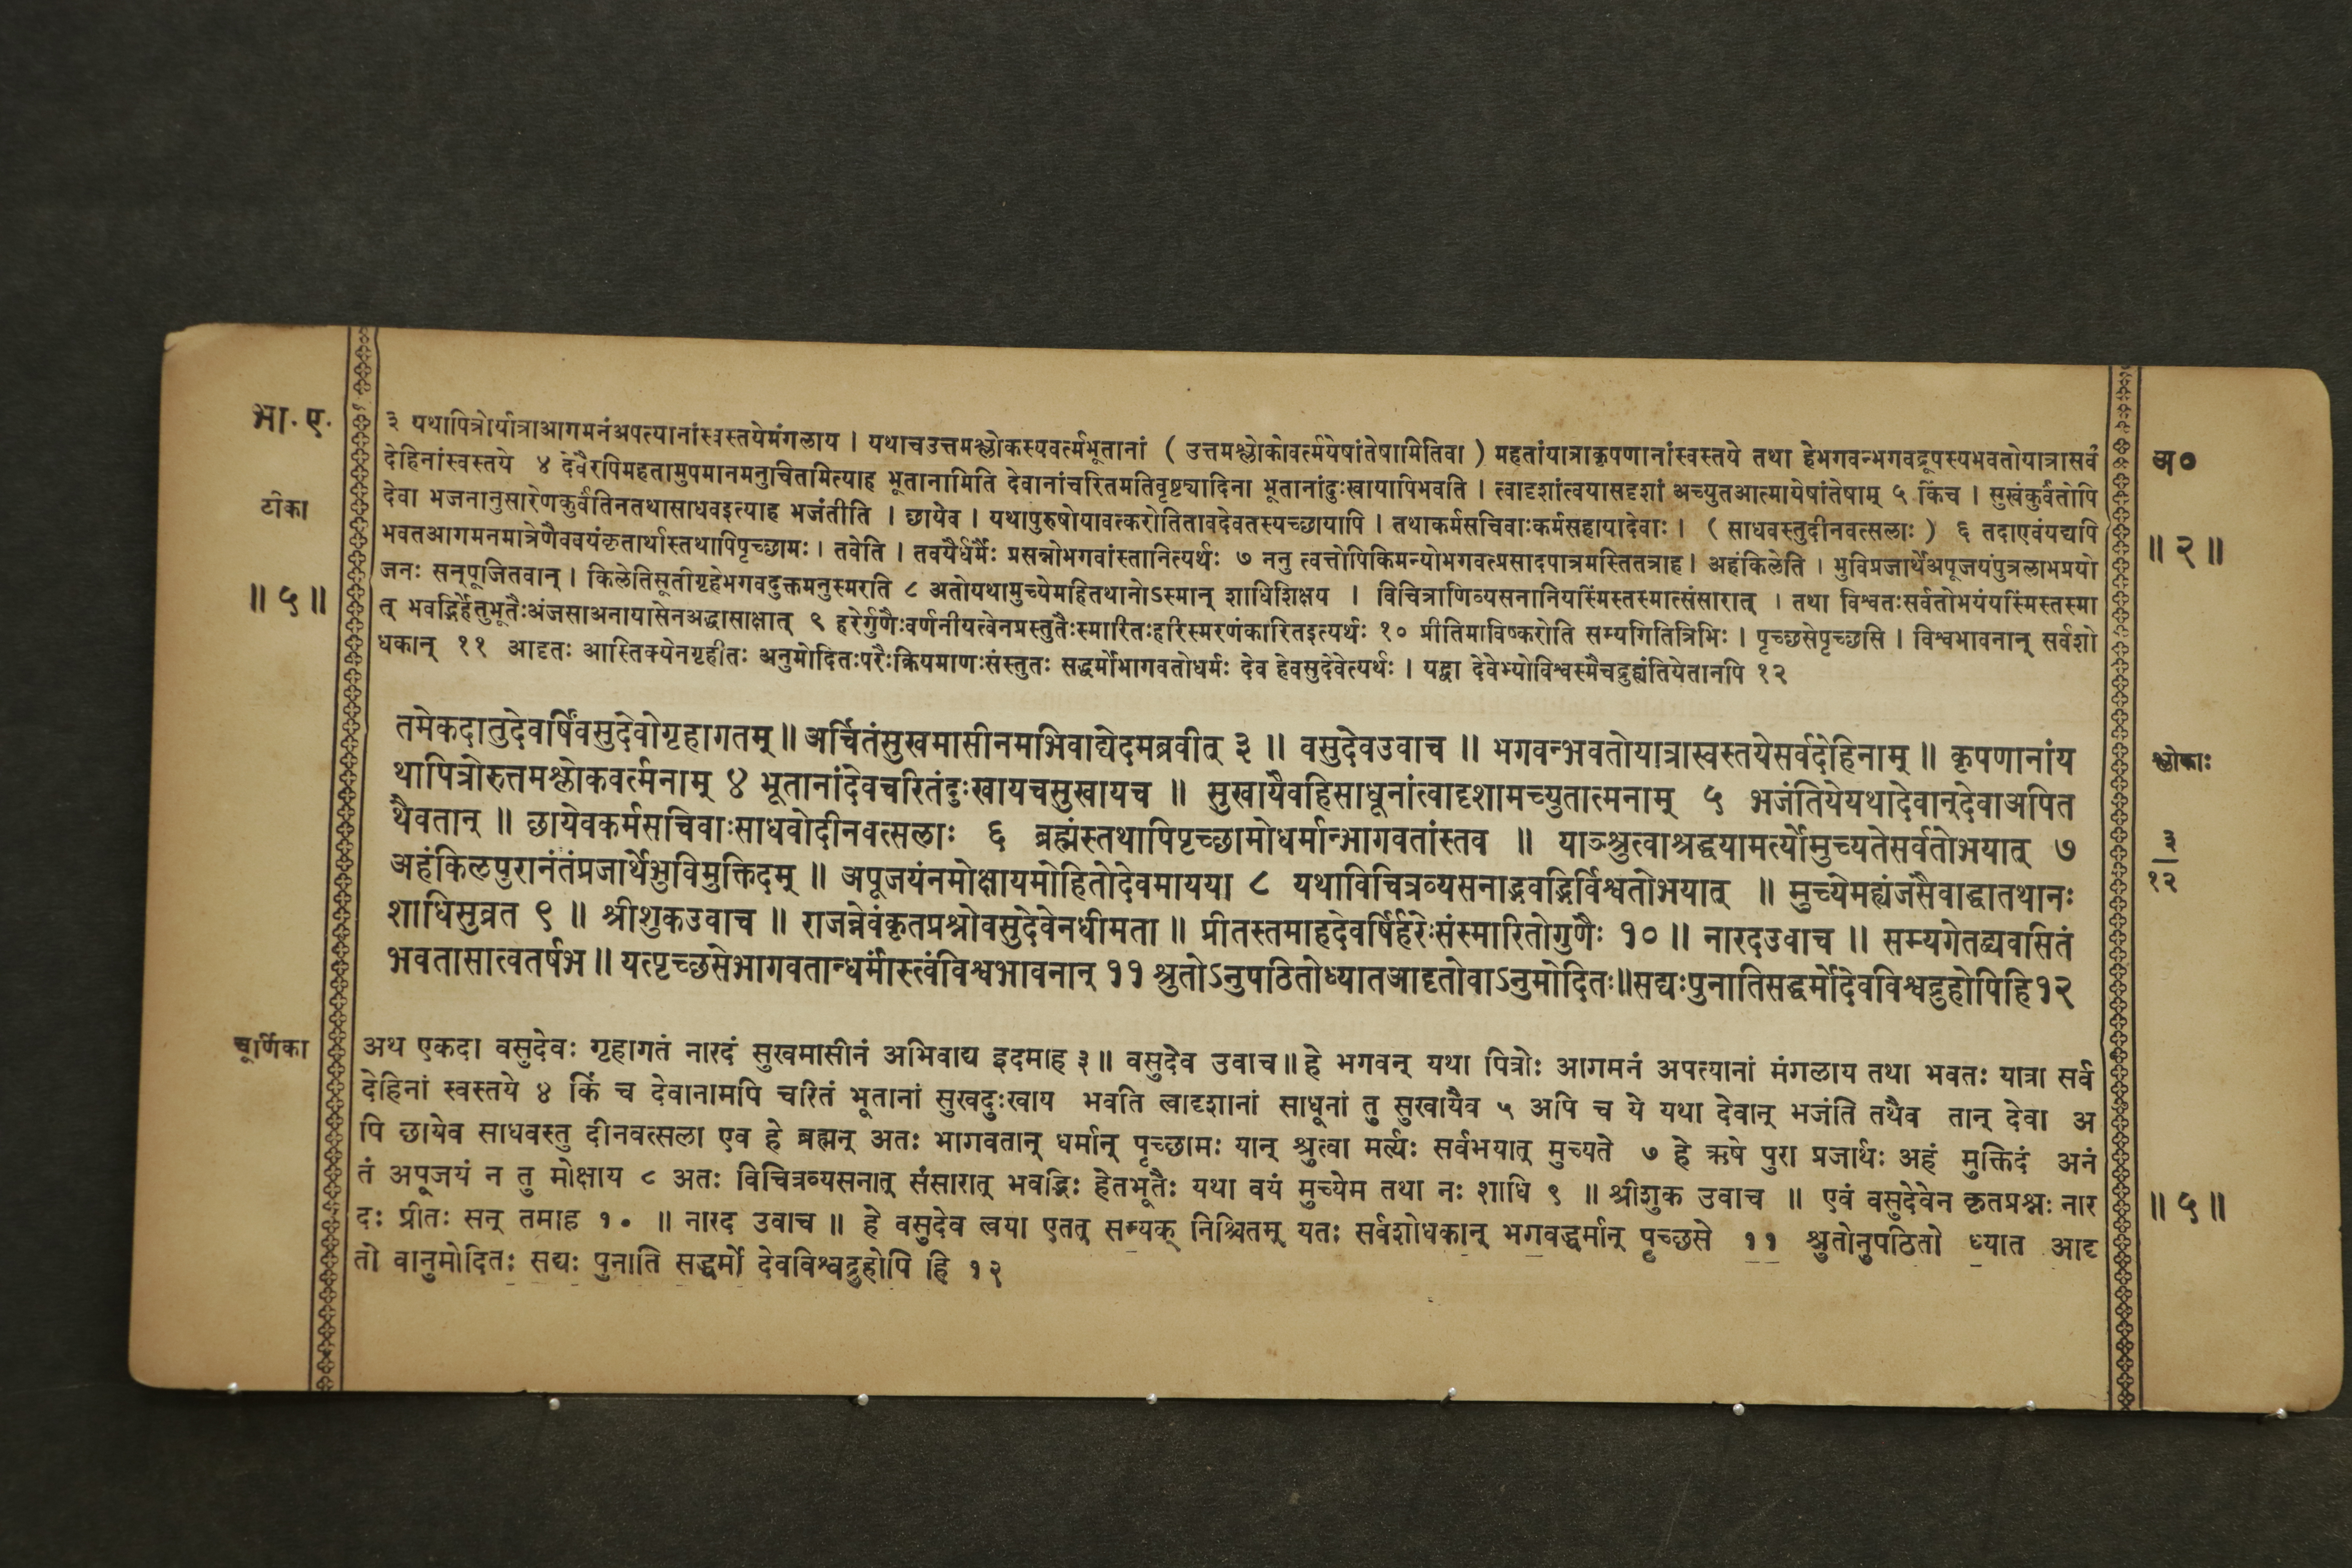 भा. ए.
टीका
॥ ५ ॥
३ यथापित्रोर्यात्राआगमनंअपत्यानांस्वस्तयेमंगलाय । यथाचउत्तमश्लोकस्यवर्त्मभूतानां ( उत्तमश्लोकोवर्त्मयेषांतेषामितिवा ) महतांयात्राकृपणानांस्वस्तये तथा हेभगवन्भगवद्रूपस्यभवतोयात्रासर्व
देहिनांस्वस्तये ४ देवैरपिमहतामुपमानमनुचितमित्याह भूतानामिति देवानांचरितमतिवृष्ट्यादिना भूतानांदुःखायापिभवति । त्वादृशांत्वयासदृशां अच्युतआत्मायेषांतेषाम् ५ किंच । सुखंकुर्वंतोपि
देवा भजनानुसारेणकुर्वंतिनतथासाधवइत्याह भजंतीति । छायेव । यथापुरुषोयावत्करोतितावदेवतस्यच्छायापि । तथाकर्मसचिवाःकर्मसहायादेवाः । ( साधवस्तुदीनवत्सलाः ) ६ तदाएवंयद्यपि
भवतआगमनमात्रेणैववयंकृतार्थास्तथापिपृच्छामः । तवेति । तवयैर्धर्मैः प्रसन्नोभगवांस्तानित्यर्थः ७ ननु त्वत्तोपिकिमन्योभगवत्प्रसादपात्रमस्तितत्राह । अहंकिलेति । भुविप्रजार्थेअपूजयंपुत्रलाभप्रयो
जनः सन्पूजितवान् । किलेतिसूतीगृहेभगवदुक्तमनुस्मरति ८ अतोयथामुच्येमहितथानोऽस्मान् शाधिशिक्षय । विचित्राणिव्यसनानियस्मिंस्तस्मात्संसारात् । तथा विश्वतःसर्वतोभयंयस्मिंस्तस्मा
त् भवद्भिर्हेतुभूतैःअंजसाअनायासेनअद्धासाक्षात् ९ हरेर्गुणैःवर्णनीयत्वेनप्रस्तुतैःस्मारितःहरिस्मरणंकारितइत्यर्थः १० प्रीतिमाविष्करोति सम्यगितित्रिभिः । पृच्छसेपृच्छसि । विश्वभावनान् सर्वशो
धकान् ११ आदृतः आस्तिक्येनगृहीतः अनुमोदितःपरैःक्रियमाणःसंस्तुतः सद्धर्मोभागवतोधर्मः देव हेवसुदेवेत्यर्थः । यद्वा देवेभ्योविश्वस्मैचद्रुह्यंतियेतानपि १२
अ०
॥ २ ॥
तमेकदातुदेवर्षिंवसुदेवोगृहागतम् ॥ अर्चितंसुखमासीनमभिवाद्येदमब्रवीत् ३ ॥ वसुदेवउवाच ॥ भगवन्भवतोयात्रास्वस्तयेसर्वदेहिनाम् ॥ कृपणानांय
थापित्रोरुत्तमश्लोकवर्त्मनाम् ४ भूतानांदेवचरितंदुःखायचसुखायच ॥ सुखायैवहिसाधूनांत्वादृशामच्युतात्मनाम् ५ भजंतियेयथादेवान्देवाअपित
थैवतान् ॥ छायेवकर्मसचिवाःसाधवोदीनवत्सलाः ६ ब्रह्मंस्तथापिपृच्छामोधर्मान्भागवतांस्तव ॥ याञ्श्रुत्वाश्रद्धयामर्त्योमुच्यतेसर्वतोभयात् ७
अहंकिलपुरानंतंप्रजार्थेभुविमुक्तिदम् ॥ अपूजयंनमोक्षायमोहितोदेवमायया ८ यथाविचित्रव्यसनाद्भवद्भिर्विश्वतोभयात् ॥ मुच्येमह्यंजसैवाद्धातथानः
शाधिसुव्रत ९ ॥ श्रीशुकउवाच ॥ राजन्नेवंकृतप्रश्नोवसुदेवेनधीमता ॥ प्रीतस्तमाहदेवर्षिर्हरेःसंस्मारितोगुणैः १० ॥ नारदउवाच ॥ सम्यगेतद्व्यवसितं
भवतासात्वतर्षभ ॥ यत्पृच्छसेभागवतान्धर्मांस्त्वंविश्वभावनान् ११ श्रुतोऽनुपठितोध्यातआदृतोवाऽनुमोदितः॥सद्यःपुनातिसद्धर्मोदेवविश्वद्रुहोपिहि१२
श्लोकाः
३
१२
चूर्णिका
अथ एकदा वसुदेवः गृहागतं नारदं सुखमासीनं अभिवाद्य इदमाह ३॥ वसुदेव उवाच॥ हे भगवन् यथा पित्रोः आगमनं अपत्यानां मंगलाय तथा भवतः यात्रा सर्व
देहिनां स्वस्तये ४ किं च देवानामपि चरितं भूतानां सुखदुःखाय भवति त्वादृशानां साधूनां तु सुखायैव ५ अपि च ये यथा देवान् भजंति तथैव तान् देवा अ
पि छायेव साधवस्तु दीनवत्सला एव हे ब्रह्मन् अतः भागवतान् धर्मान् पृच्छामः यान् श्रुत्वा मर्त्यः सर्वभयात् मुच्यते ७ हे ऋषे पुरा प्रजार्थः अहं मुक्तिदं अनं
तं अपूजयं न तु मोक्षाय ८ अतः विचित्रव्यसनात् संसारात् भवद्भिः हेतभूतैः यथा वयं मुच्येम तथा नः शाधि ९ ॥ श्रीशुक उवाच ॥ एवं वसुदेवेन कृतप्रश्नः नार
दः प्रीतः सन् तमाह १० ॥ नारद उवाच ॥ हे वसुदेव त्वया एतत् सम्यक् निश्चितम् यतः सर्वशोधकान् भगवद्धर्मान् पृच्छसे ११ श्रुतोनुपठितो ध्यात आदृ
तो वानुमोदितः सद्यः पुनाति सद्धर्मो देवविश्वद्रुहोपि हि १२
॥ ५ ॥